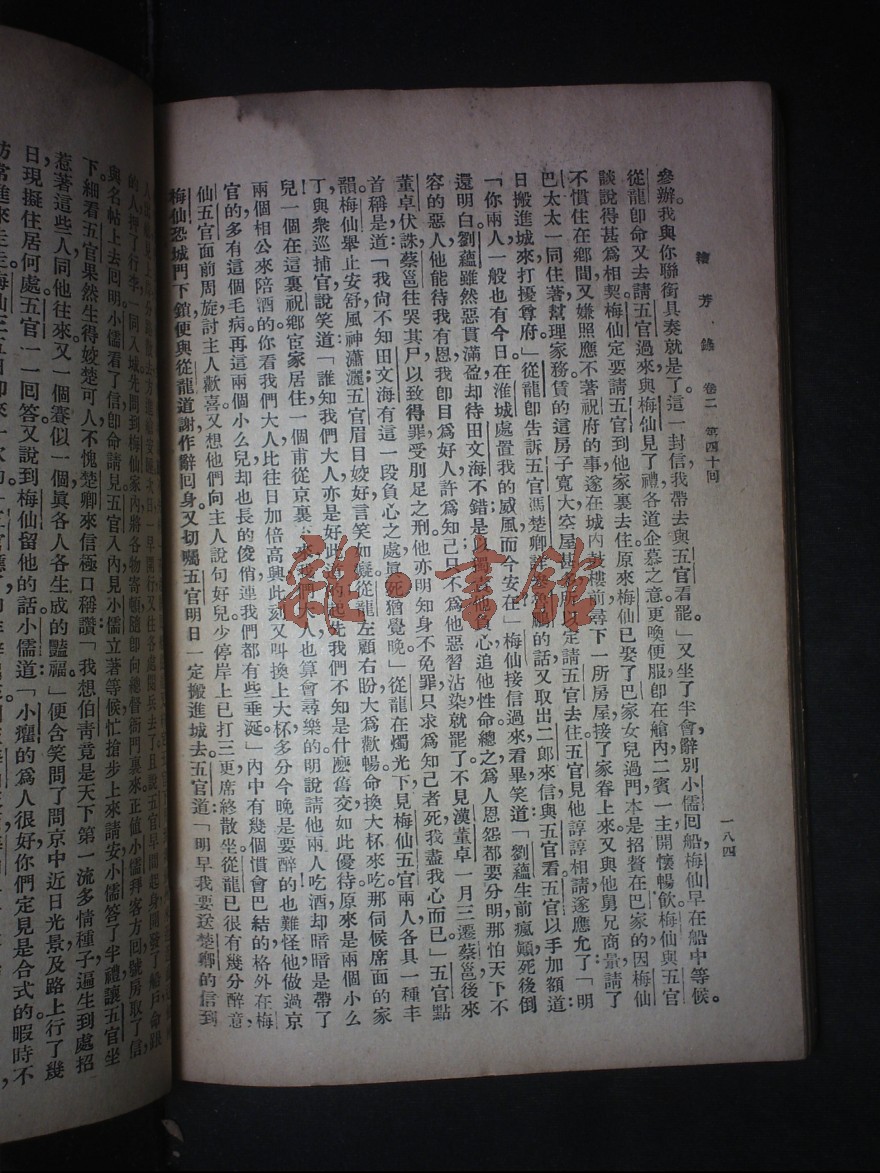 繪芳錄 卷二 第四十回
一八四
參辦。我與你聯銜具奏就是了。這一封信我帶去與五官看罷。」又坐了半會，辭別小儒回船。梅仙早在船中等候。
從龍卽命又去請五官過來，與梅仙見了禮，各道企慕之意。更喚便服卽在艙內，二賓一主，開懷暢飲。梅仙與五官
談說得甚爲相契。梅仙定要請五官到他家裏去住。原來梅仙已娶了巴家女兒過門，本是招贅在巴家的，因梅仙
不慣住在鄉間，又嫌照應不著祝府的事，遂在城內鼓樓前尋下一所房屋，接了家眷上來，又與他舅兄商量請了
巴太太一同住著，幫理家務。賃的這房子寬大，空屋甚多，所以定請五官去住。五官見他諄諄相請，遂應允了：「明
日搬進城來，打擾尊府。」從龍卽告訴五官馮楚卿
的話，又取出二郎來信與五官看。五官以手加額道：
「你兩人一般也有今日。在淮城處置我的威風，而今安在」梅仙接信過來看畢，笑道：「劉蘊生前瘋顚，死後倒
還明白。劉蘊雖然惡貫滿盈，却待田文海不錯，是以
他負心，追他性命。總之爲人恩怨都要分明，那怕天下不
容的惡人，他能待我有恩，我卽目爲好人，許爲知己，只不爲他惡習沾染就罷了。不見漢董卓一月三遷蔡邕，後來
董卓伏誅，蔡邕往哭其尸，以致得罪，受刖足之刑。他亦明知身不免罪，只求爲知己者死，我盡我心而已。」五官點
首稱是，道：「我尙不知田文海有這一段負心之處，眞死猶覺晚。」從龍在燭光下見梅仙五官兩人各具一種丰
韻，梅仙舉止安舒，風神瀟灑；五官眉目姣好，言笑如癡。從龍左顧右盼，大爲歡暢，命換大杯來吃。那伺候席面的家
丁與衆巡捕官說笑道：「誰知我們大人亦是好此
的，起先我們不知是什麼舊交，如此優待，原來是兩個小么
兒！一個在這裏祝鄉宦家居住，一個甫從京裏
來，我們大人也算會尋樂的，明說請他兩人吃酒，却暗暗是帶了
兩個相公來陪酒的。你看我們大人比往日加倍高興，此刻又叫換上大杯，多分今晚是要醉的。也難怪他做過京
官的，多有這個毛病。再這兩個小么兒却也長的俊俏，連我們都有些垂涎。」內中有幾個慣會巴結的，格外在梅
仙五官面前周旋，討主人歡喜，又想他們向主人說句好兒。少停，岸上已打三更，席終散坐。從龍已很有幾分醉意。
梅仙恐城門下鎖，便與從龍道謝，作辭回身。又切囑五官明日一定搬進城去。五官道：「明早我要送楚卿的信到
與名帖上去回明。小儒看了信，卽命請見。五官入內，見小儒立著等候，忙搶步上來請安。小儒答了半禮，讓五官坐
下。細看五官果然生得姣楚可人，不愧楚卿來信極口稱讚。「我想伯靑竟是天下第一流多情種子，逼生到處招
惹著這些人同他往來。又一個賽似一個，眞各人各生成的豔福。」便含笑問了問京中近日光景及路上行了幾
日，現擬住居何處。五官一一回答，又說到梅仙留他的話。小儒道：「小癯的爲人很好，你們定見是合式的，暇時不